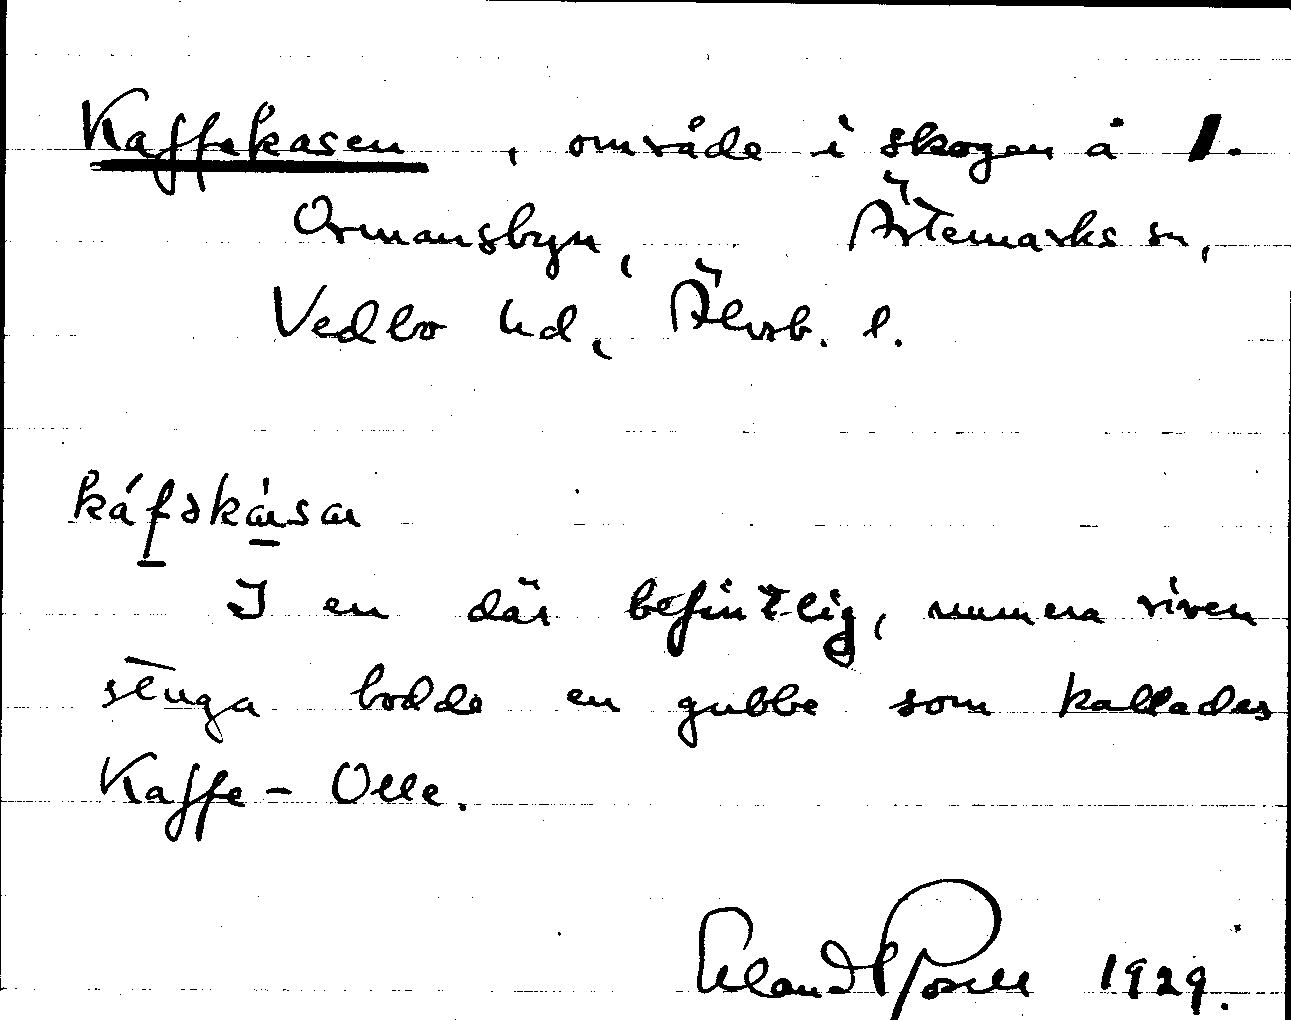 Kaffekasen, område i skogen å 1.
Ormansbyn, Ärtemarks sn,
Vedbo hd, Älvsb. l.
káfəkàsan
I en där befintlig, numera riven
stuga bodde en gubbe som kallades
Kaffe-Olle.
Erland Rosell 1929.